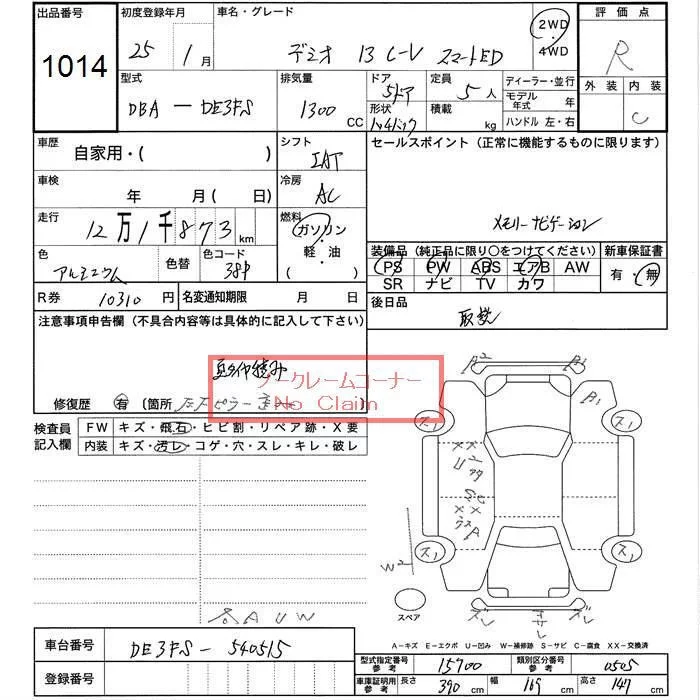 出品番号
1014
初度登録年月
25年1月
車名・グレード
デミオ 13 C-V スマートED
2WD
・
4WD
評価点
R
外装 内装
C
型式
DBA-DE3FS
排気量
1300 CC
ドア
5ドア
形状
ハッチバック
定員
5人
積載
kg
ディーラー・並行
モデル年式 年
ハンドル 左・右
車歴
自家用・( )
シフト
IAT
セールスポイント(正常に機能するものに限ります)
メモリーナビゲーション
車検
年 月(日)
冷房
AC
走行
12万1千873km
燃料
ガソリン
・
軽・油
( )
色
アルミニウム
色替
色コード
38P
装備品(純正品に限り○をつけてください)
PS PW ABS エアB AW
SR ナビ TV カワ
新車保証書
有・無
R券 10310円
名変通知期限 月 日
後日品
取説
注意事項申告欄(不具合内容等は具体的に記入して下さい)
ノークレームコーナー
No Claim
修復歴 有(箇所
検査員記入欄
FW キズ・飛石・ヒビ割・リペア跡・X要
内装 キズ・汚レ・コゲ・穴・スレ・キレ・破レ
B2
B1
ス1
ス1
XX
U
SC
XX
W2
ス1
ス1
スペア
ズレ
サビ
ズレ
AUW
A-キズ E-エクボ U-凹み W-補修跡 S-サビ C-腐食 XX-交換済
車台番号 DE3FS-540515
登録番号
型式指定番号参考 15900
類別区分番号参考 0505
車庫証明用参考 長さ 390cm 幅 169cm 高さ 147cm